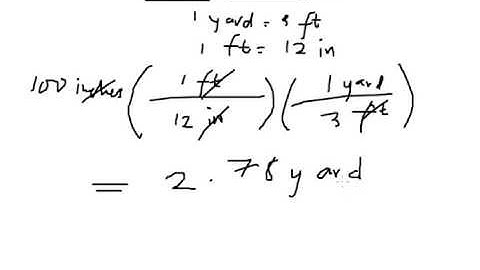 1 yard = 3 ft
1 ft = 12 in
100 inches (1 ft / 12 in) (1 yard / 3 ft)
= 2.78 yard